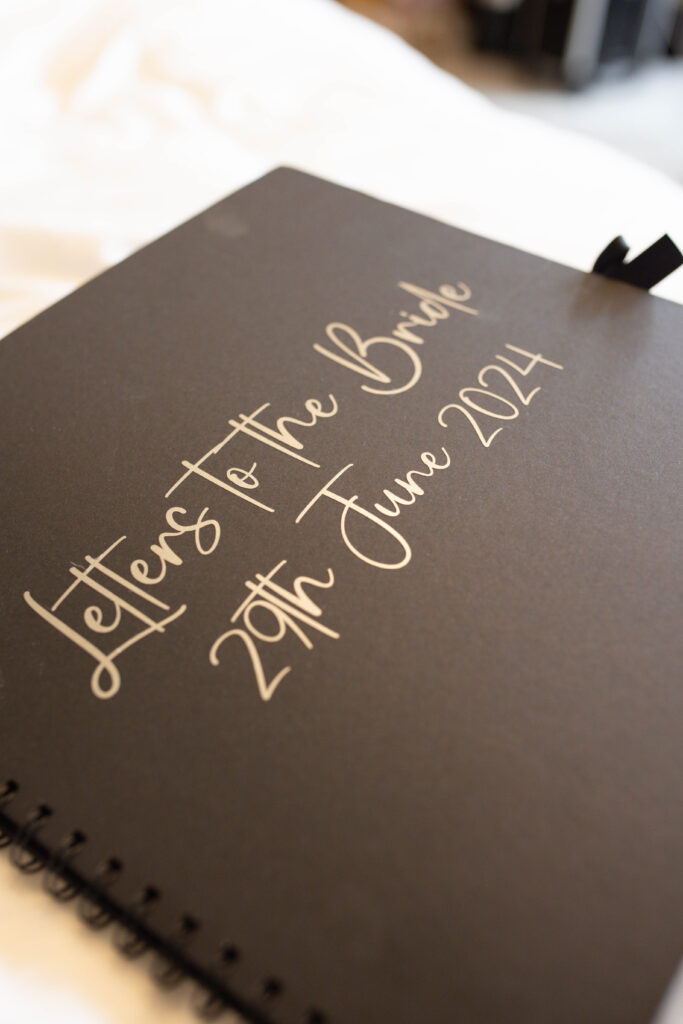 Letters to the Bride
29th June 2024